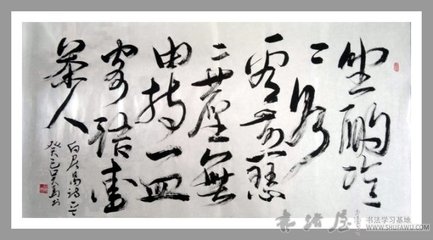 坐酌泠
〻水
看煎瑟
〻塵無
由持一盌
寄與愛
茶人
白居易詩
癸巳
书法屋
书法学习基地
WWW.SHUFAWU.COM